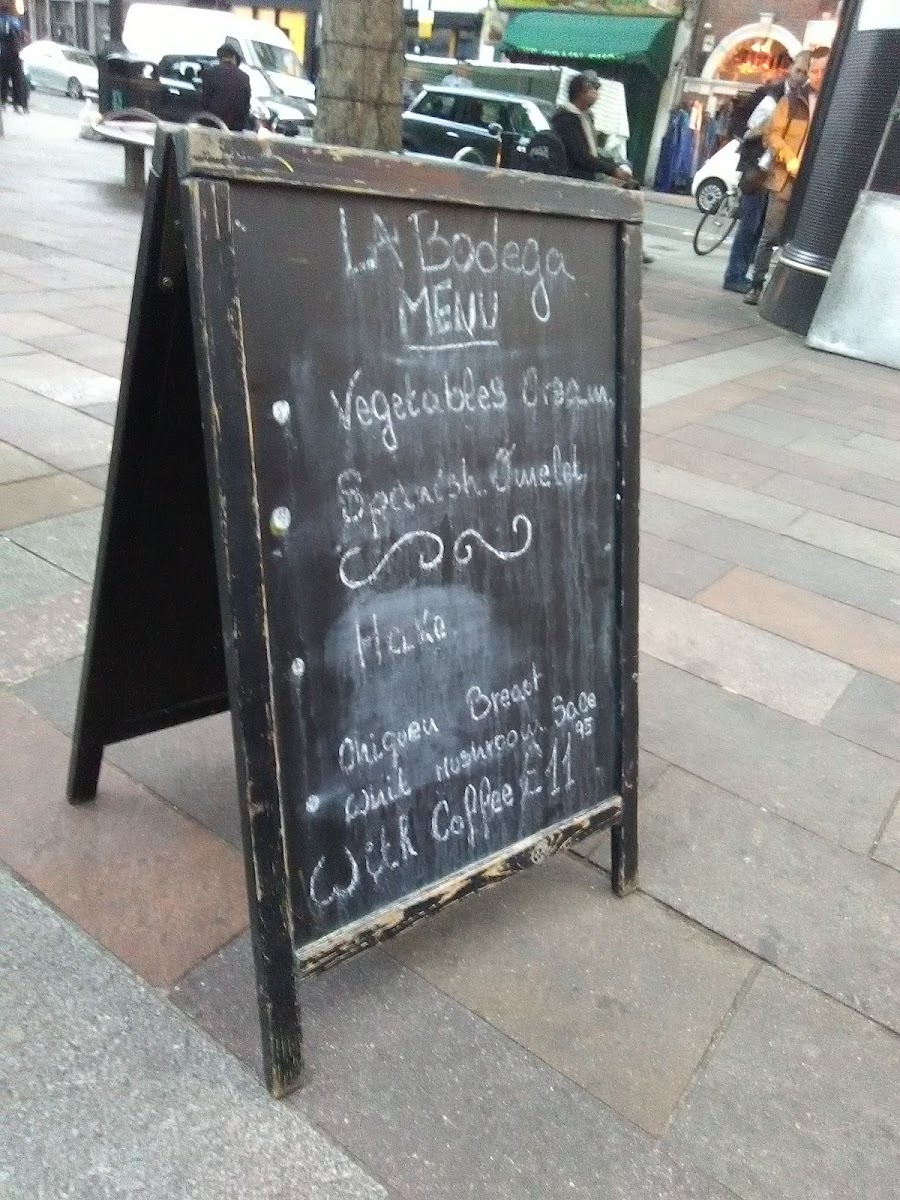 LA Bodega
MENU
Vegetables Cream.
Spanish Omelet
Hake.
Chiquen Breast
Whit Mushroom Sace
With Coffee £11 95